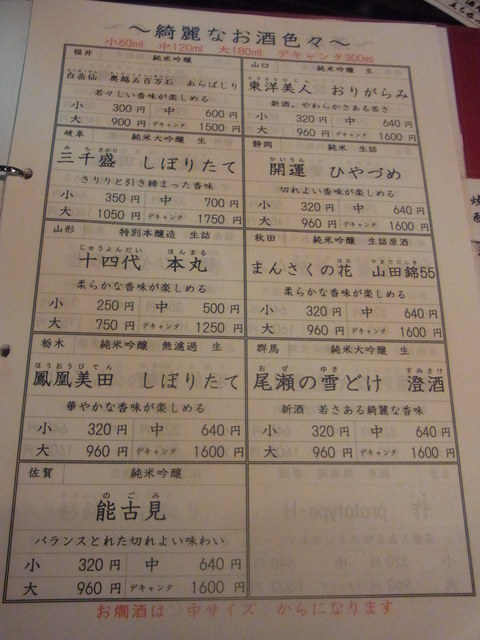 ～綺麗なお酒色々～
小60ml 中120ml 大180ml デキャンタ300ml
福井 純米吟醸
百岳仙 奥越五百万石 あらばしり
若々しい香味が楽しめる
小 300円 中 600円
大 900円 デキャンタ 1500円
山口 純米吟醸 生
とうようびじん
東洋美人 おりがらみ
新酒。やわらかさある若さ
小 320円 中 640円
大 960円 デキャンタ 1600円
岐阜 純米大吟醸 生
みちさかり
三千盛 しぼりたて
きりりと引き締まった香味
小 350円 中 700円
大 1050円 デキャンタ 1750円
静岡 純米 生詰
かいうん
開運 ひやづめ
切れよい香味が楽しめる
小 320円 中 640円
大 960円 デキャンタ 1600円
山形 特別本醸造 生詰
じゅうよんだい ほんまる
十四代 本丸
柔らかな香味が楽しめる
小 250円 中 500円
大 750円 デキャンタ 1250円
秋田 純米吟醸 生詰原酒
はな やまだにしき
まんさくの花 山田錦55
柔らかな香味が楽しめる
小 320円 中 640円
大 960円 デキャンタ 1600円
栃木 純米吟醸 無濾過 生
ほうおうびでん
鳳凰美田 しぼりたて
華やかな香味が楽しめる
小 320円 中 640円
大 960円 デキャンタ 1600円
群馬 純米大吟醸 生
おぜ ゆき すみさけ
尾瀬の雪どけ 澄酒
新酒 若さある綺麗な香味
小 320円 中 640円
大 960円 デキャンタ 1600円
佐賀 純米吟醸
のごみ
能古見
バランスとれた切れよい味わい
小 320円 中 640円
大 960円 デキャンタ 1600円
お燗酒は 中サイズ からになります